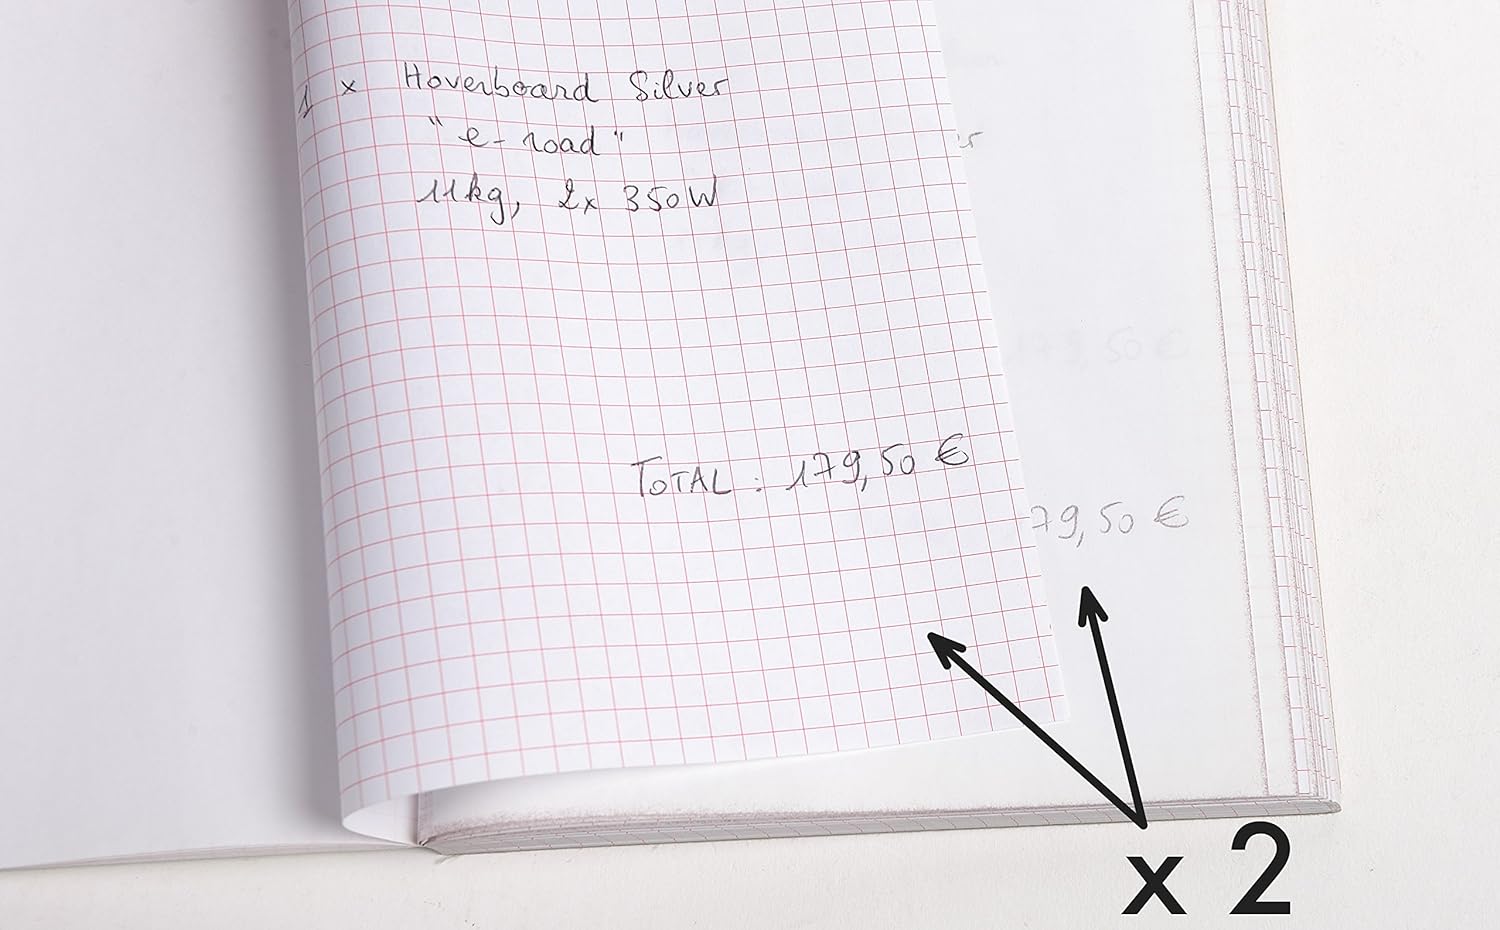 1 x Hoverboard Silver
"e-road"
11kg, 2x 350W
er
179,50 €
TOTAL : 179,50 €
79,50 €
x 2